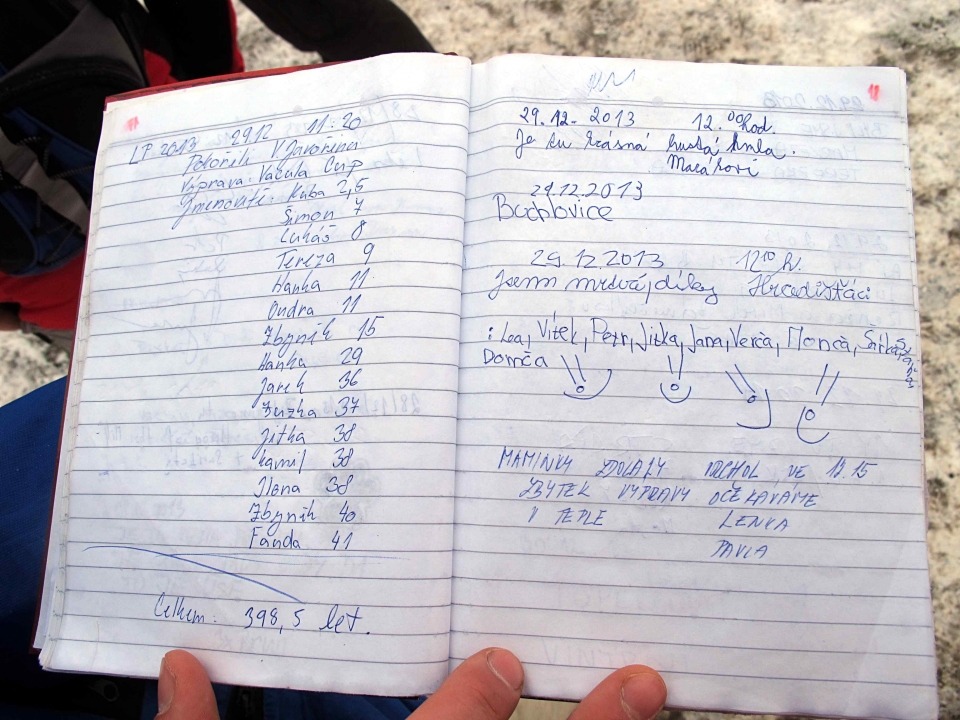 LP 2013 29.12 11:20
Pokořili V. Javořinu
Výprava: Vašula Cup
Jmenovitě: Kuba 2,5
Šimon 7
Lukáš 8
Tereza 9
Hanka 11
Ondra 11
Zbyněk 15
Hanka 29
Jarek 36
Zuzka 37
Jitka 38
Kamil 38
Ilona 38
Zbyněk 40
Fanda 41
Celkem: 398,5 let.
29.12.2013 12.00 hod.
Je tu krásná hustá mlha.
Macákovi
29.12.2013
Buchlovice
29.12.2013 12 10 h.
Jsem mrtvá, díky Hradišťáci
: Lea, Vítek, Petr, Jitka, Jana, Verča, Monča, Šárka,
Domča
MAMINKY ZDOLALY VRCHOL VE 12.15
ZBYTEK VÝPRAVY OČEKÁVÁME
V TEPLE LENKA
PAVLA